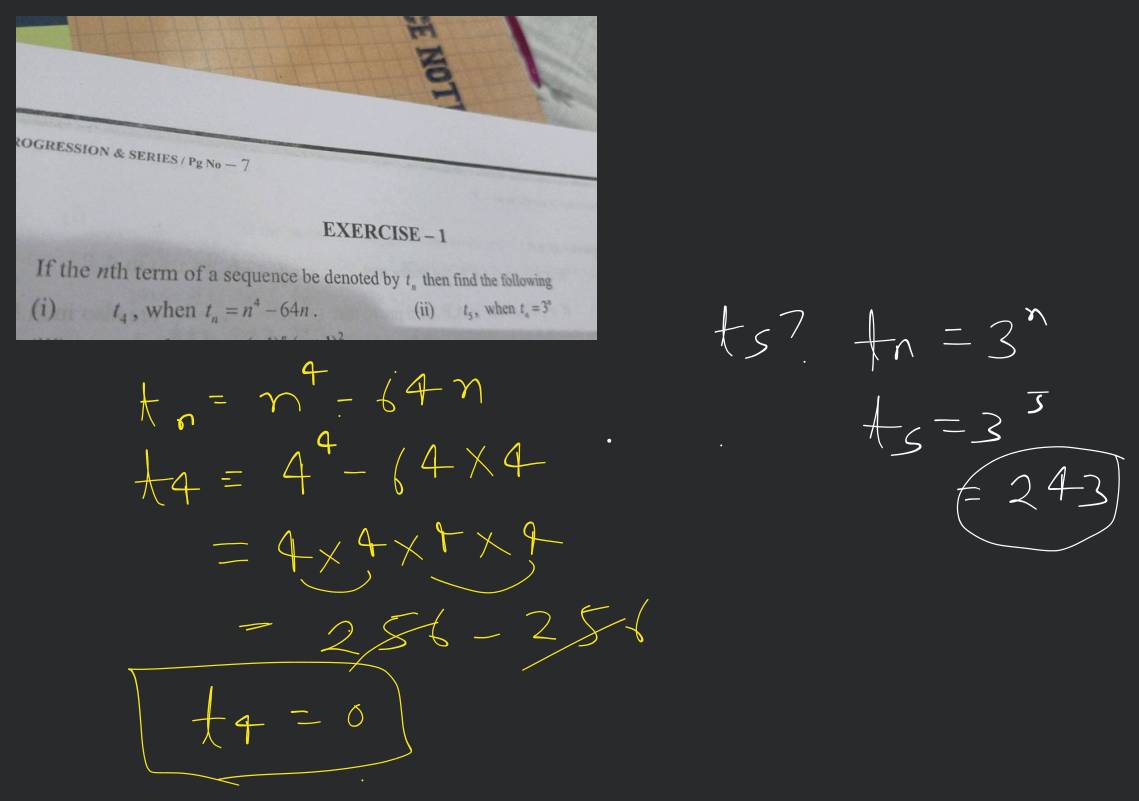 CE NOT
ROGRESSION & SERIES / Pg No – 7
EXERCISE – 1
If the nth term of a sequence be denoted by tₙ then find the following
(i) t₄, when tₙ = n⁴ – 64n.
(ii) t₅, when tₙ = 3ⁿ
tₙ = n⁴ - 64n
t₄ = 4⁴ - 64 × 4
= 4 × 4 × 4 × 4
= 256 - 256
t₄ = 0
t₅? tₙ = 3ⁿ
t₅ = 3⁵
= 243